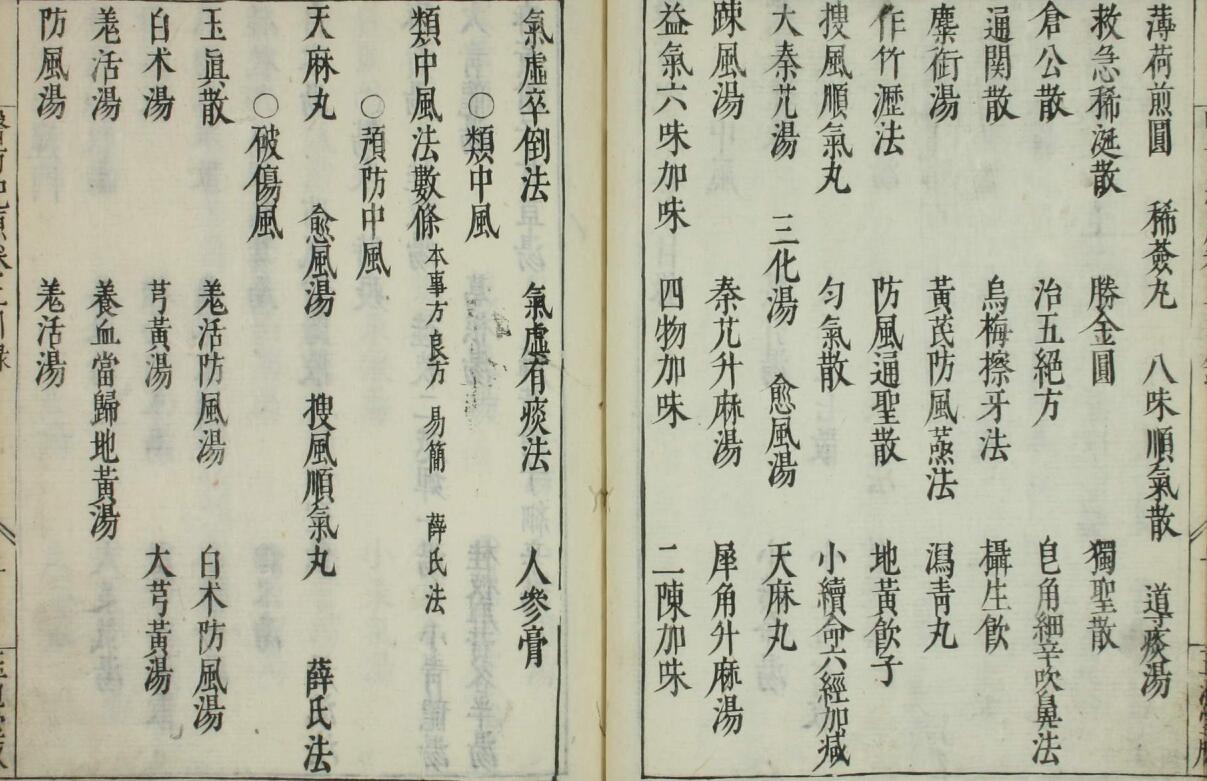 薄荷煎圓　稀薟丸　八味順氣散　導痰湯
救急稀涎散　勝金圓　獨聖散
倉公散　治五絕方　皂角細辛吹鼻法
通関散　烏梅擦牙法　攝生飲
麋銜湯　黃芪防風蒸法　瀉青丸
作竹瀝法　防風通聖散　地黃飲子
搜風順氣丸　勻氣散　小續命六經加減
大秦艽湯　三化湯　愈風湯　天麻丸
踈風湯　秦艽升麻湯　犀角升麻湯
益氣六味加味　四物加味　二陳加味
氣虛卒倒法　氣虛有痰法　人參膏
○類中風
類中風法數條　本事方　良方　易簡　薛氏法
○預防中風
天麻丸　愈風湯　搜風順氣丸　薛氏法
○破傷風
玉眞散　羌活防風湯　白朮防風湯
白朮湯　芎黃湯　大芎黃湯
羌活湯　養血當歸地黃湯
防風湯　羌活湯